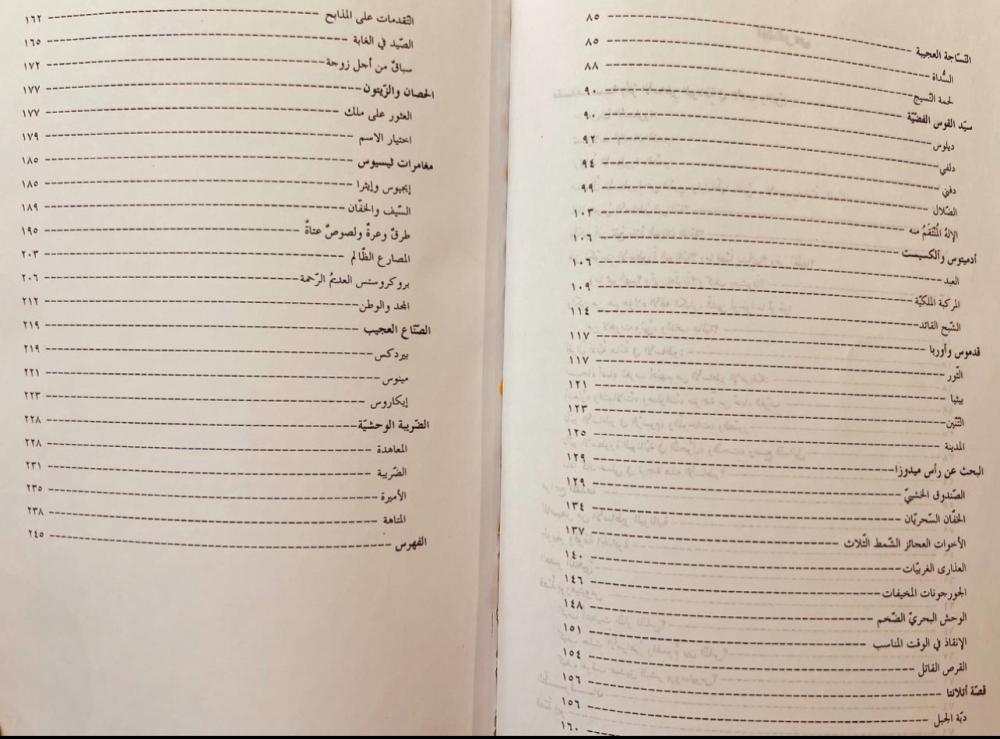 النسّاجة العجيبة ٨٥
السُّداة ٨٥
لحمة النّسيج ٨٨
سيّد القوس الفضيّة ٩٠
ديلوس ٩٠
دلفي ٩٢
دفني ٩٤
الضّلال ٩٩
الإلهُ المُنْتَقَمُ منه ١٠٣
أدميتوس وألكسيست ١٠٦
العبد ١٠٦
المركبة الملكيّة ١٠٩
الشّبح القائد ١١٤
قدموس وأوربا ١١٧
الثّور ١١٧
بيثيا ١٢١
التّنّين ١٢٣
المدينة ١٢٥
البحث عن رأس ميدوزا ١٢٩
الصّندوق الخشبيّ ١٢٩
الخفّان السّحريّان ١٣٤
الأخوات العجائز الشّمط الثّلاث ١٣٧
العذارى الغربيّات ١٤٠
الجورجونات المخيفات ١٤٦
الوحش البحريّ الضّخم ١٤٨
الإنقاذ في الوقت المناسب ١٥١
القرص القاتل ١٥٤
قصّة أتلانتا ١٥٦
دبّة الجبل ١٥٦
١٦٠
التّقدمات على المذابح ١٦٢
الصّيد في الغابة ١٦٥
سباقٌ من أجل زوجة ١٧٢
الحصان والزّيتون ١٧٧
العثور على ملك ١٧٧
اختيار الاسم ١٧٩
مغامرات ثيسيوس ١٨٥
إيجيوس وإيثرا ١٨٥
السّيف والخفّان ١٨٩
طرقٌ وعرةٌ ولصوصٌ عتاةٌ ١٩٥
المصارع الظّالم ٢٠٣
بروكروستس العديمُ الرّحمة ٢٠٦
المجد والوطن ٢١٢
الصّنّاع العجيب ٢١٩
بيردكس ٢١٩
مينوس ٢٢١
إيكاروس ٢٢٣
الضّريبة الوحشيّة ٢٢٨
المعاهدة ٢٢٨
الضّريبة ٢٣١
الأميرة ٢٣٥
المتاهة ٢٣٨
الفهرس ٢٤٥